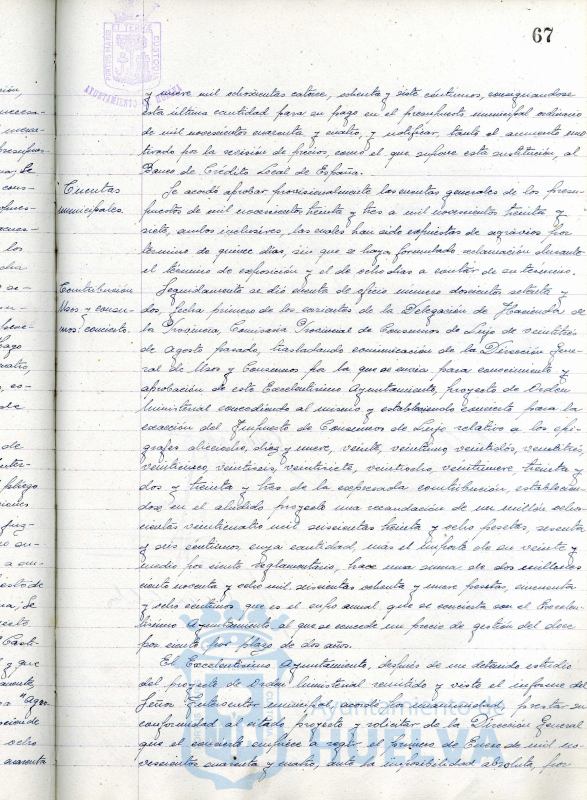 67
AYUNTAMIENTO DE HUELVA
y nueve mil ochocientas catorce, ochenta y siete céntimos, consignandose
esta última cantidad para su pago en el presupuesto municipal ordinario
de mil novecientos cuarenta y cuatro, y notificar, tanto el aumento mo-
tivado por la revisión de precios, como el que supone esta sustitución, al
Banco de Crédito Local de España.
Cuentas
municipales.
Se acordó aprobar provisionalmente las cuentas generales de los presu-
puestos de mil novecientos treinta y tres a mil novecientos treinta y
siete, ambos inclusives, las cuales han sido expuestas de agravios, por
término de quince días, sin que se haya formulado reclamación durante
el término de exposición y el de ocho días a contar de su termino.
Contribución
Usos y consu-
mos: concierto.
Seguidamente se dió cuenta de oficio número doscientos setenta y
dos, fecha primero de los corrientes de la Delegación de Hacienda de
la Provincia, Comisaria Provincial de Consumos de Lujo de veintitres
de agosto pasado, trasladando comunicación de la Dirección Gene-
ral de Usos y Consumos por la que se envia para conocimiento y
aprobación de este Excelentísimo Ayuntamiento, proyecto de Orden
Ministerial concediendo al mismo y estableciendo concierto para la
exacción del Impuesto de Consumos de Lujo relativo a los epi-
grafes dieciocho, diez y nueve, veinte, veintiuno, veintidós, veintitrés,
veinticinco, veintiseis, veintisiete, veintiocho, veintinueve, treinta y
dos y treinta y tres de la expresada contribución, establecien-
dose en el aludido proyecto una recaudación de un millón ocho-
cientas veinticuatro mil seiscientas treinta y ocho pesetas, sesenta
y seis céntimos cuya cantidad, mas el importe de un veinte y
medio por ciento reglamentario, hace una suma de dos millones
ciento noventa y ocho mil seiscientas ochenta y nueve pesetas, cincuenta
y ocho céntimos que es el cupo anual, que se concierta con el Excelen-
tísimo Ayuntamiento al que se concede un precio de gestión del doce
por ciento por plazo de dos años.
El Excelentísimo Ayuntamiento, después de un detenido estudio
del proyecto de Orden Ministerial remitido y visto el informe del
Señor Interventor municipal, acordó por unanimidad, prestar su
conformidad al citado proyecto y solicitar de la Dirección General
que el concierto empiece a regir el primero de Enero de mil no-
vescientos cuarenta y cuatro, ante la imposibilidad absoluta, por
Ayuntamiento de
HUELVA